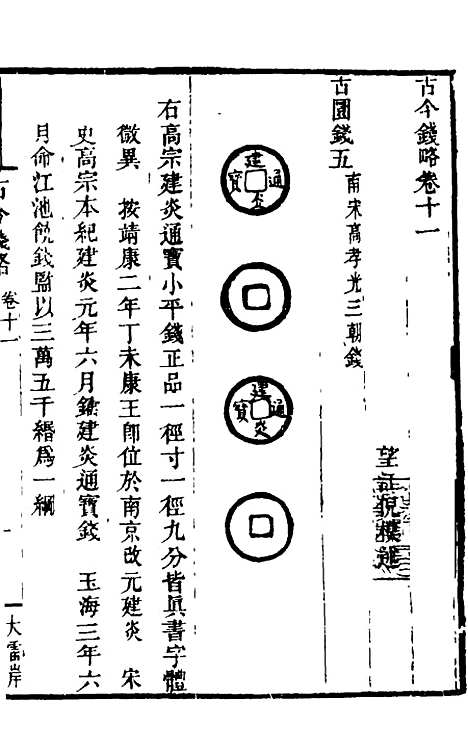 古今錢略卷十一
望江倪模
古圜錢五 南宋高孝光三朝錢
建炎通寶
建炎通寶
右高宗建炎通寶小平錢正品一徑寸一徑九分皆眞書字體
微異 按靖康二年丁未康王卽位於南京改元建炎 宋
史高宗本紀建炎元年六月鑄建炎通寶錢 玉海三年六
月命江池饒錢監以三萬五千緡爲一綱
古今錢略 卷十一 一 大雷岸